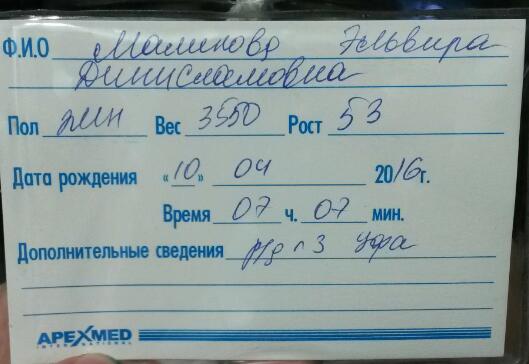 Ф.И.О Маликова Эльвира
Динисламовна
Пол жен Вес 3550 Рост 53
Дата рождения «10» 04 2016г.
Время 07 ч. 07 мин.
Дополнительные сведения р/д № 3 Уфа
APEXMED
INTERNATIONAL